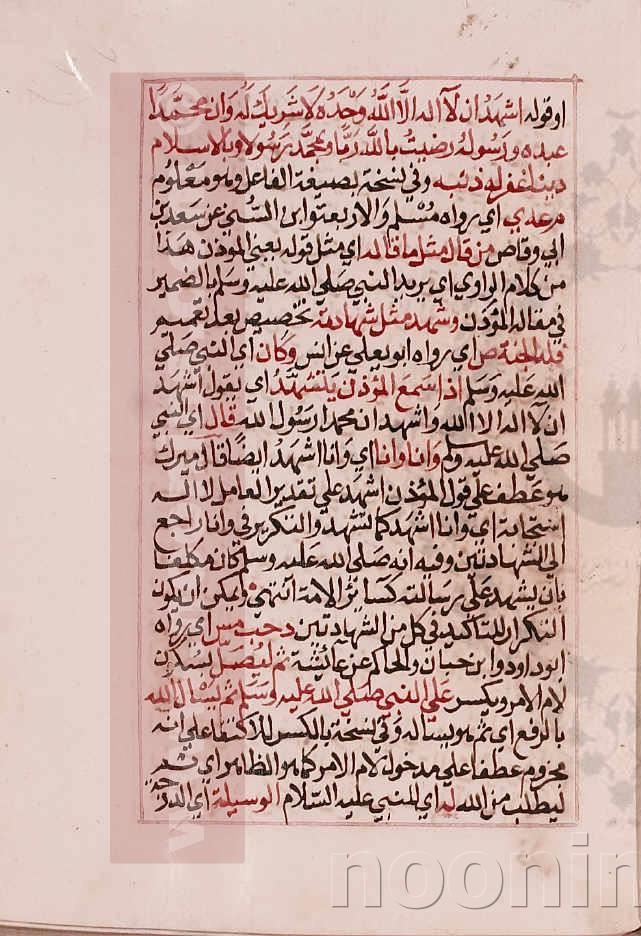 او قوله اشهد ان لا اله الا الله وحده لا شريك له وان محمدا
عبده ورسوله رضيت بالله ربا وبمحمد رسولا وبالاسلام
دينا غفر له ذنبه وفي نسخة بصيغة الفاعل وهو معلوم
مرعدي اي رواه مسلم والاربعة وابن السني عن سعد بن
ابي وقاص من قال مثل ما قاله اي مثل قوله يعني المؤذن هذا
من كلام الراوي اي يريد النبي صلى الله عليه وسلم بالضمير
في مقاله المؤذن وشهد مثل شهادته تخصيص بعد تعميم
فله الجنة ص اي رواه ابو يعلي عن انس وكان اي النبي صلي
الله عليه وسلم اذا سمع المؤذن يتشهد اي يقول اشهد
ان لا اله الا الله واشهد ان محمدا رسول الله قال اي النبي
صلي الله عليه وسلم وانا وانا اي وانا اشهد ايضا قال ميرك
هو عطف علي قول المؤذن اشهد علي تقدير العامل لا اله
اي وانا اشهد كما تشهد والتكرير في وانا راجع
الي الشهادتين وفيه انه صلي الله عليه وسلم كان مكلفا
بان يشهد علي رسالته كسائر الامة انتهي ويمكن ان يكون
التكرار للتاكيد في كل من الشهادتين د حب مس اي رواه
ابو داود وابن حبان والحاكم عن عائشة ثم ليصل بسكون
لام الامر ويكسر علي النبي صلي الله عليه وسلم ثم يسال الله
بالرفع اي ثم هو يساله وفي نسخة بالكسر للاكتفا علي انه
مجزوم عطفا علي مدخول لام الامر كما هو الظاهر اي ثم
ليطلب من الله له اي للنبي عليه السلام الوسيلة اي الدرجة
noonin